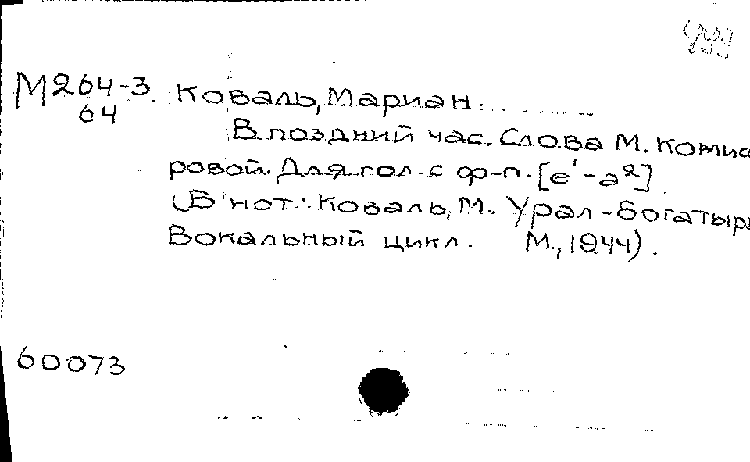 М264-3 Коваль, Мариан
64
В поздний час. Слова М. Комис
ровой. Для гол. с ф-п. [e'-a²]
(В нот.: Коваль, М. Урал-богатырь
Вокальный цикл. М., 1944).
60073